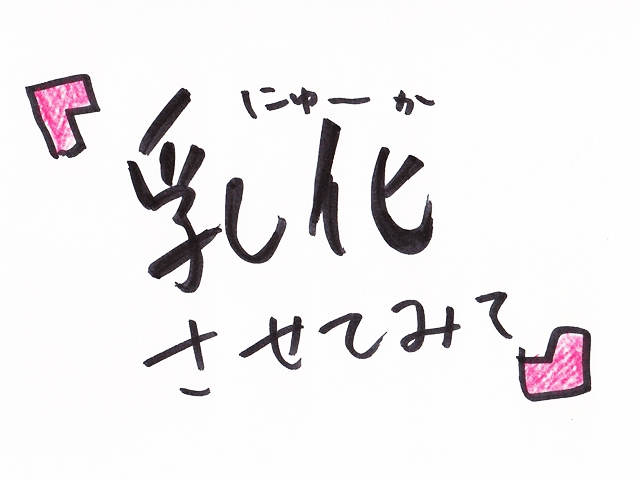 『乳化
にゅーか
させてみて』